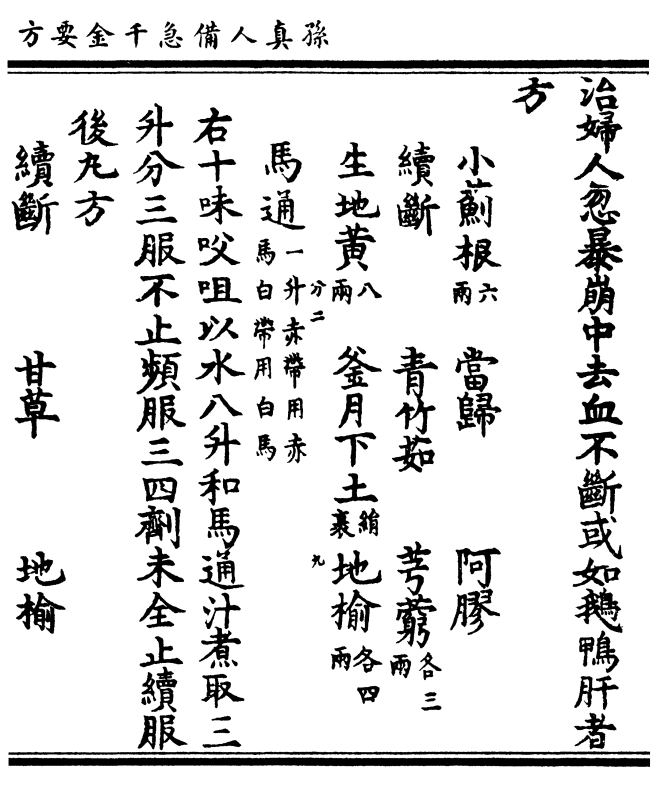 孫真人備急千金要方
治婦人忽暴崩中去血不斷或如鵝鴨肝者
方
小薊根六兩 當歸 阿膠
續斷 青竹茹 芎藭各三兩
生地黃八兩分二 釜月下土絹裹 地榆各四兩九
馬通一升赤帶用赤馬白帶用白馬
右十味㕮咀以水八升和馬通汁煮取三
升分三服不止頻服三四劑未全止續服
後丸方
續斷 甘草 地榆